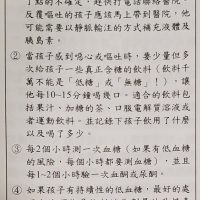 了點的不確定，趕快打電話聯絡醫院。
反覆嘔吐的孩子應該馬上帶到醫院，他
可能需要以靜脈輸注的方式補充液體及
胰島素。
② 當孩子感到噁心或嘔吐時，要少量但多
次給孩子一些真正含糖的飲料（飲料千
萬不能是「低糖」或「無糖」！），讓
他每10~15分鐘喝幾口。適合的飲料包
括果汁、加糖的茶、口服電解質溶液或
者運動飲料。並記錄下孩子飲用了什麼
以及喝了多少。
③ 每2個小時測一次血糖（如果有低血糖
的風險，每個小時都要測血糖），並且
每1~2個小時驗一次血酮或尿酮。
④ 如果孩子有持續性的低血糖，最好的處